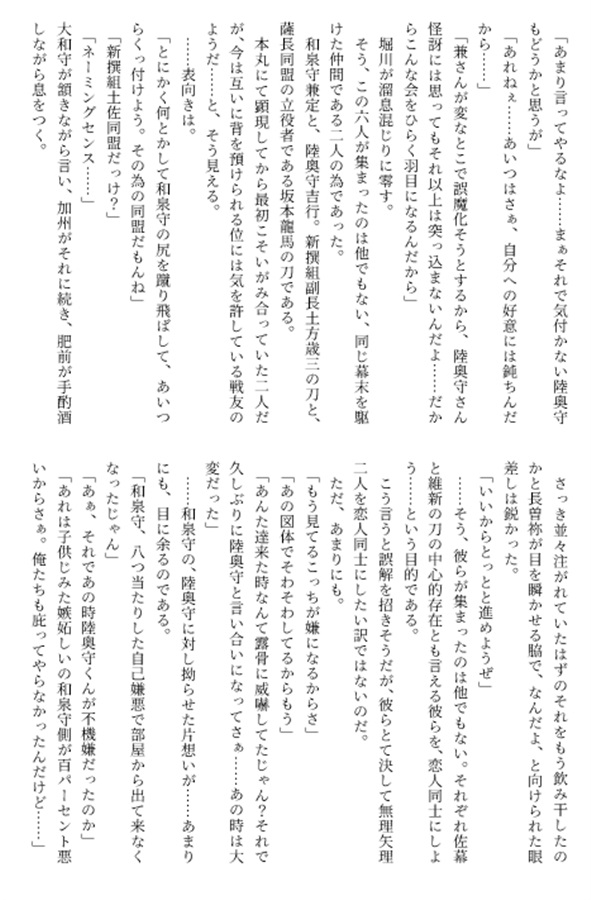 「あまり言ってやるなよ……まぁそれで気付かない陸奥守
もどうかと思うが」
「あれねぇ……あいつはさぁ、自分への好意には鈍ちんだ
から……」
「兼さんが変なとこで誤魔化そうとするから、陸奥守さん
怪訝には思ってもそれ以上は突っ込まないんだよ……だか
らこんな会をひらく羽目になるんだから」
堀川が溜息混じりに零す。
そう、この六人が集まったのは他でもない、同じ幕末を駆
けた仲間である二人の為であった。
和泉守兼定と、陸奥守吉行。新撰組副長土方歳三の刀と、
薩長同盟の立役者である坂本龍馬の刀である。
本丸にて顕現してから最初こそいがみ合っていた二人だ
が、今は互いに背を預けられる位には気を許している戦友の
ようだ……と、そう見える。
……表向きは。
「とにかく何とかして和泉守の尻を蹴り飛ばして、あいつ
らくっ付けよう。その為の同盟だもんね」
「新撰組土佐同盟だっけ？」
「ネーミングセンス……」
大和守が頷きながら言い、加州がそれに続き、肥前が手酌酒
しながら息をつく。
さっき並々注がれていたはずのそれをもう飲み干したの
かと長曽祢が目を瞬かせる脇で、なんだよ、と向けられた眼
差しは鋭かった。
「いいからとっとと進めようぜ」
……そう、彼らが集まったのは他でもない。それぞれ佐幕
と維新の刀の中心的存在とも言える彼らを、恋人同士にしよ
う……という目的である。
こう言うと誤解を招きそうだが、彼らとて決して無理矢理
二人を恋人同士にしたい訳ではないのだ。
ただ、あまりにも。
「もう見てるこっちが嫌になるからさ」
「あの図体でそわそわしてるからもう」
「あんた達来た時なんて露骨に威嚇してたじゃん？それで
久しぶりに陸奥守と言い合いになってさぁ……あの時は大
変だった」
……和泉守の、陸奥守に対し拗らせた片想いが……あまり
にも、目に余るのである。
「和泉守、八つ当たりした自己嫌悪で部屋から出て来なく
なったじゃん」
「あぁ、それであの時陸奥守くんが不機嫌だったのか」
「あれは子供じみた嫉妬しいの和泉守側が百パーセント悪
いからさぁ。俺たちも庇ってやらなかったんだけど……」